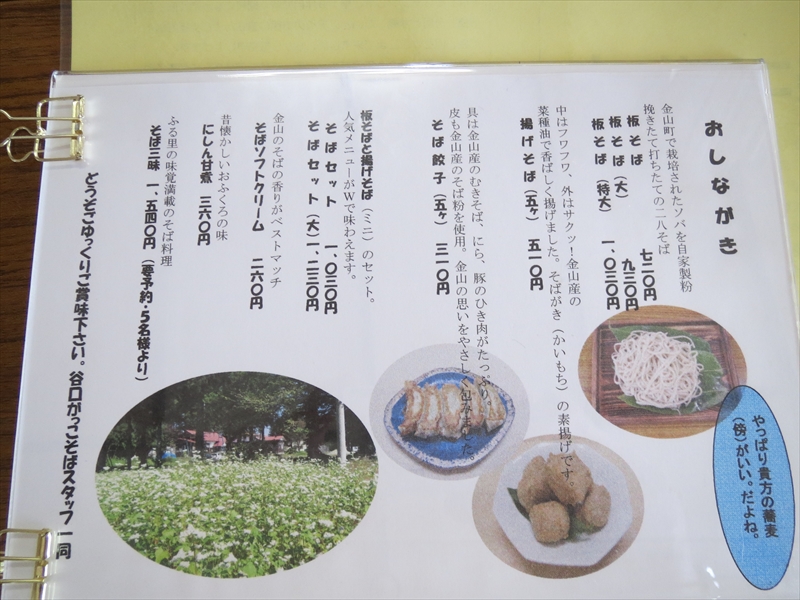 おしながき
金山町で栽培されたソバを自家製粉
挽きたて打ちたての二八そば
板そば 七二〇円
板そば（大） 九三〇円
板そば（特大） 一、〇三〇円
中はフワフワ、外はサクッ！金山産の
菜種油で香ばしく揚げました。そばがき（かいもち）の素揚げです。
揚げそば（五ヶ） 五一〇円
具は金山産のむきそば、にら、豚のひき肉がたっぷり
皮も金山産のそば粉を使用。金山の思いをやさしく包みました。
そば餃子（五ヶ） 三一〇円
板そばと揚げそば（ミニ）のセット。
人気メニューがWで味わえます。
そばセット 一、〇三〇円
そばセット（大）一、二三〇円
金山のそばの香りがベストマッチ
そばソフトクリーム 二六〇円
昔懐かしいおふくろの味
にしん甘煮 三六〇円
ふる里の味覚満載のそば料理
そば三昧 一、五四〇円（要予約・5名様より）
どうぞごゆっくりご賞味下さい。谷口がっこそばスタッフ一同
やっぱり貴方の蕎麦
（傍）がいい。だよね。